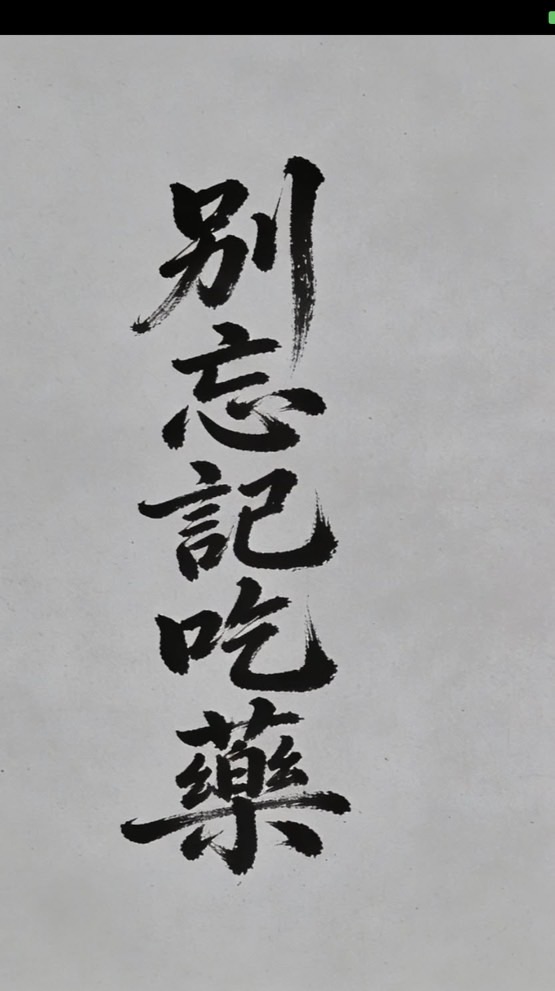 別忘記吃藥